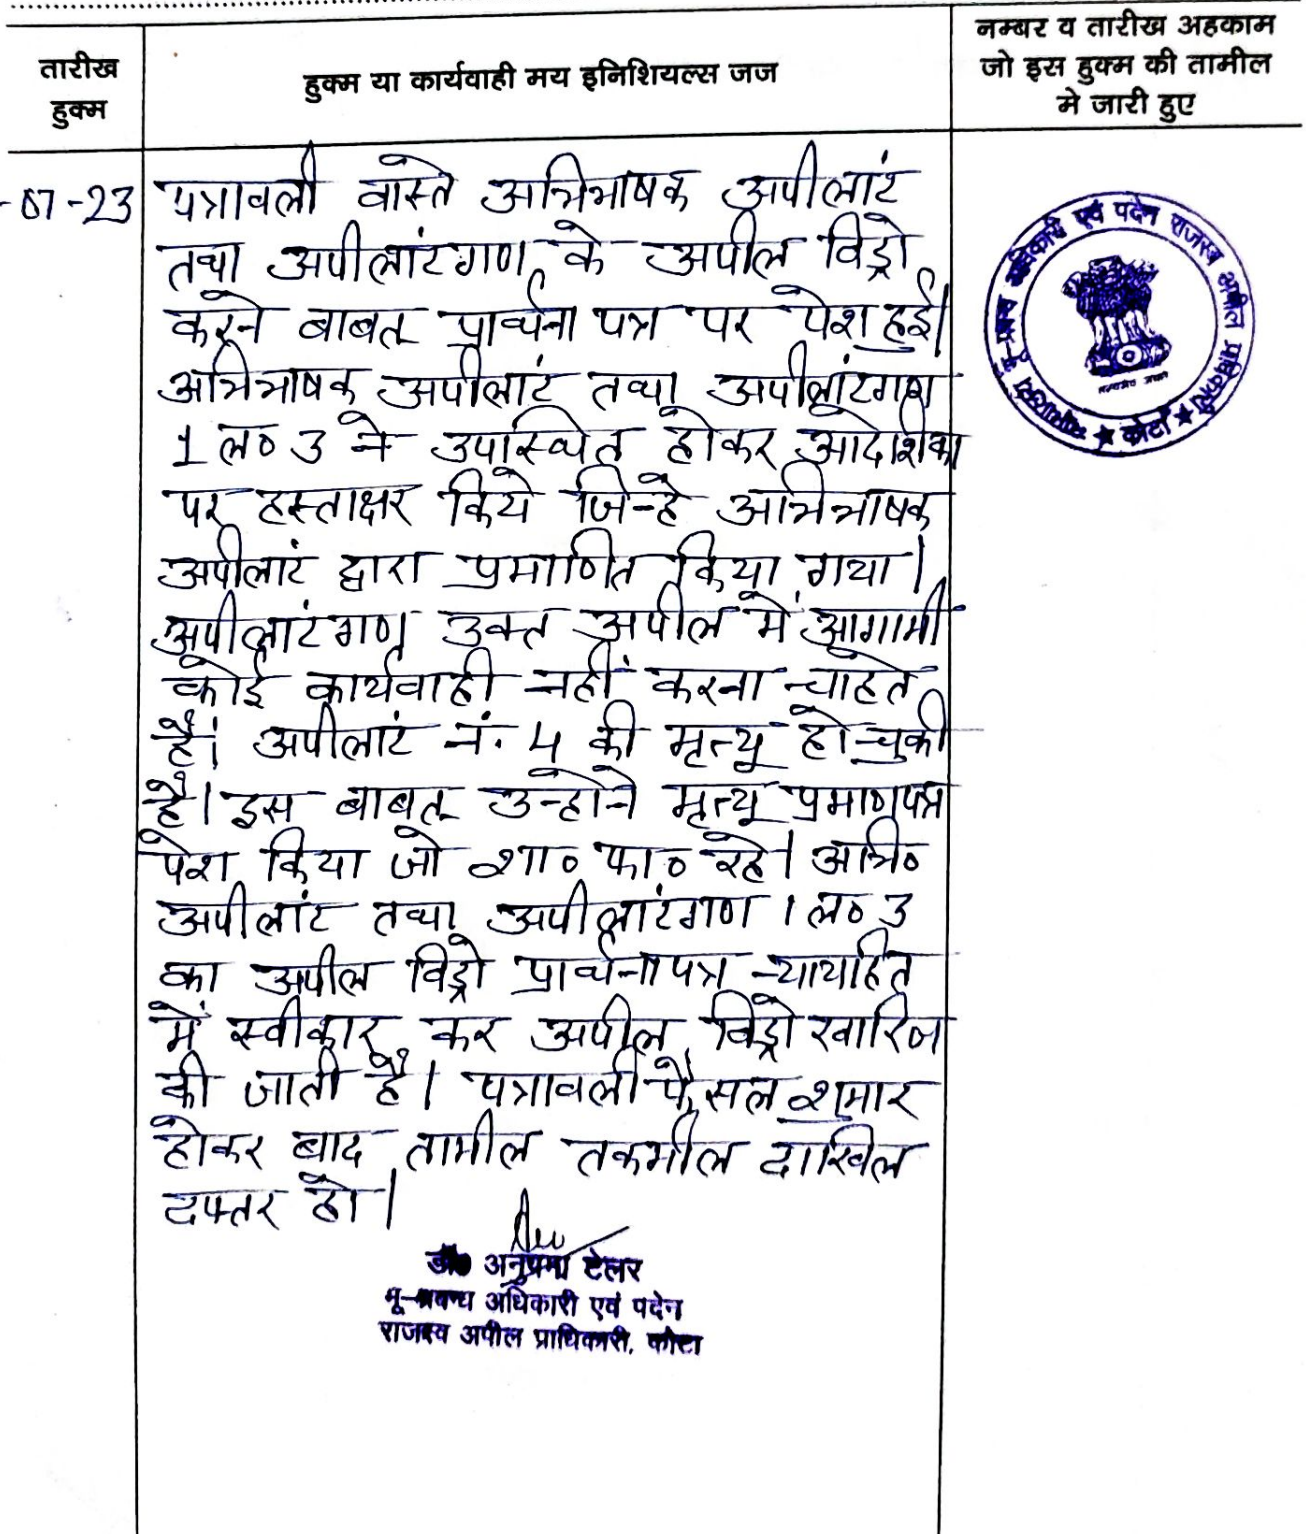 तारीख
हुक्म
हुक्म या कार्यवाही मय इनिशियल्स जज
नम्बर व तारीख अहकाम
जो इस हुक्म की तामील
मे जारी हुए
-07-23
पत्रावली वास्ते अभिभाषक अपीलांट
तथा अपीलांटगण के अपील विड्रो
करने बाबत् प्रार्थना पत्र पर पेश हुई।
अभिभाषक अपीलांट तथा अपीलांटगण
1 ल० 3 ने उपस्थित होकर आदेशिका
पर हस्ताक्षर किये जिन्हे अभिभाषक
अपीलांट द्वारा प्रमाणित किया गया।
अपीलांटगण उक्त अपील में आगामी
कोई कार्यवाही नहीं करना चाहते
हैं। अपीलांट नं. 4 की मृत्यू हो चुकी
है। इस बाबत् उन्होने मृत्यू प्रमाणपत्र
पेश किया जो शा० फा० रहे। अभि०
अपीलांट तथा अपीलांटगण 1 ल० 3
का अपील विड्रो प्रार्थनापत्र न्यायहित
में स्वीकार कर अपील विड्रो खारिज
की जाती है। पत्रावली फैसल शुमार
होकर बाद तामील तकमील दाखिल
दफ्तर हो।
डॉ० अनुपमा टेलर
भू-प्रबन्ध अधिकारी एवं पदेन
राजस्व अपील प्राधिकारी, कोटा
न्यायालय भू-प्रबन्ध अधिकारी एवं पदेन राजस्व अपील प्राधिकारी
★ कोटा ★
सत्यमेव जयते